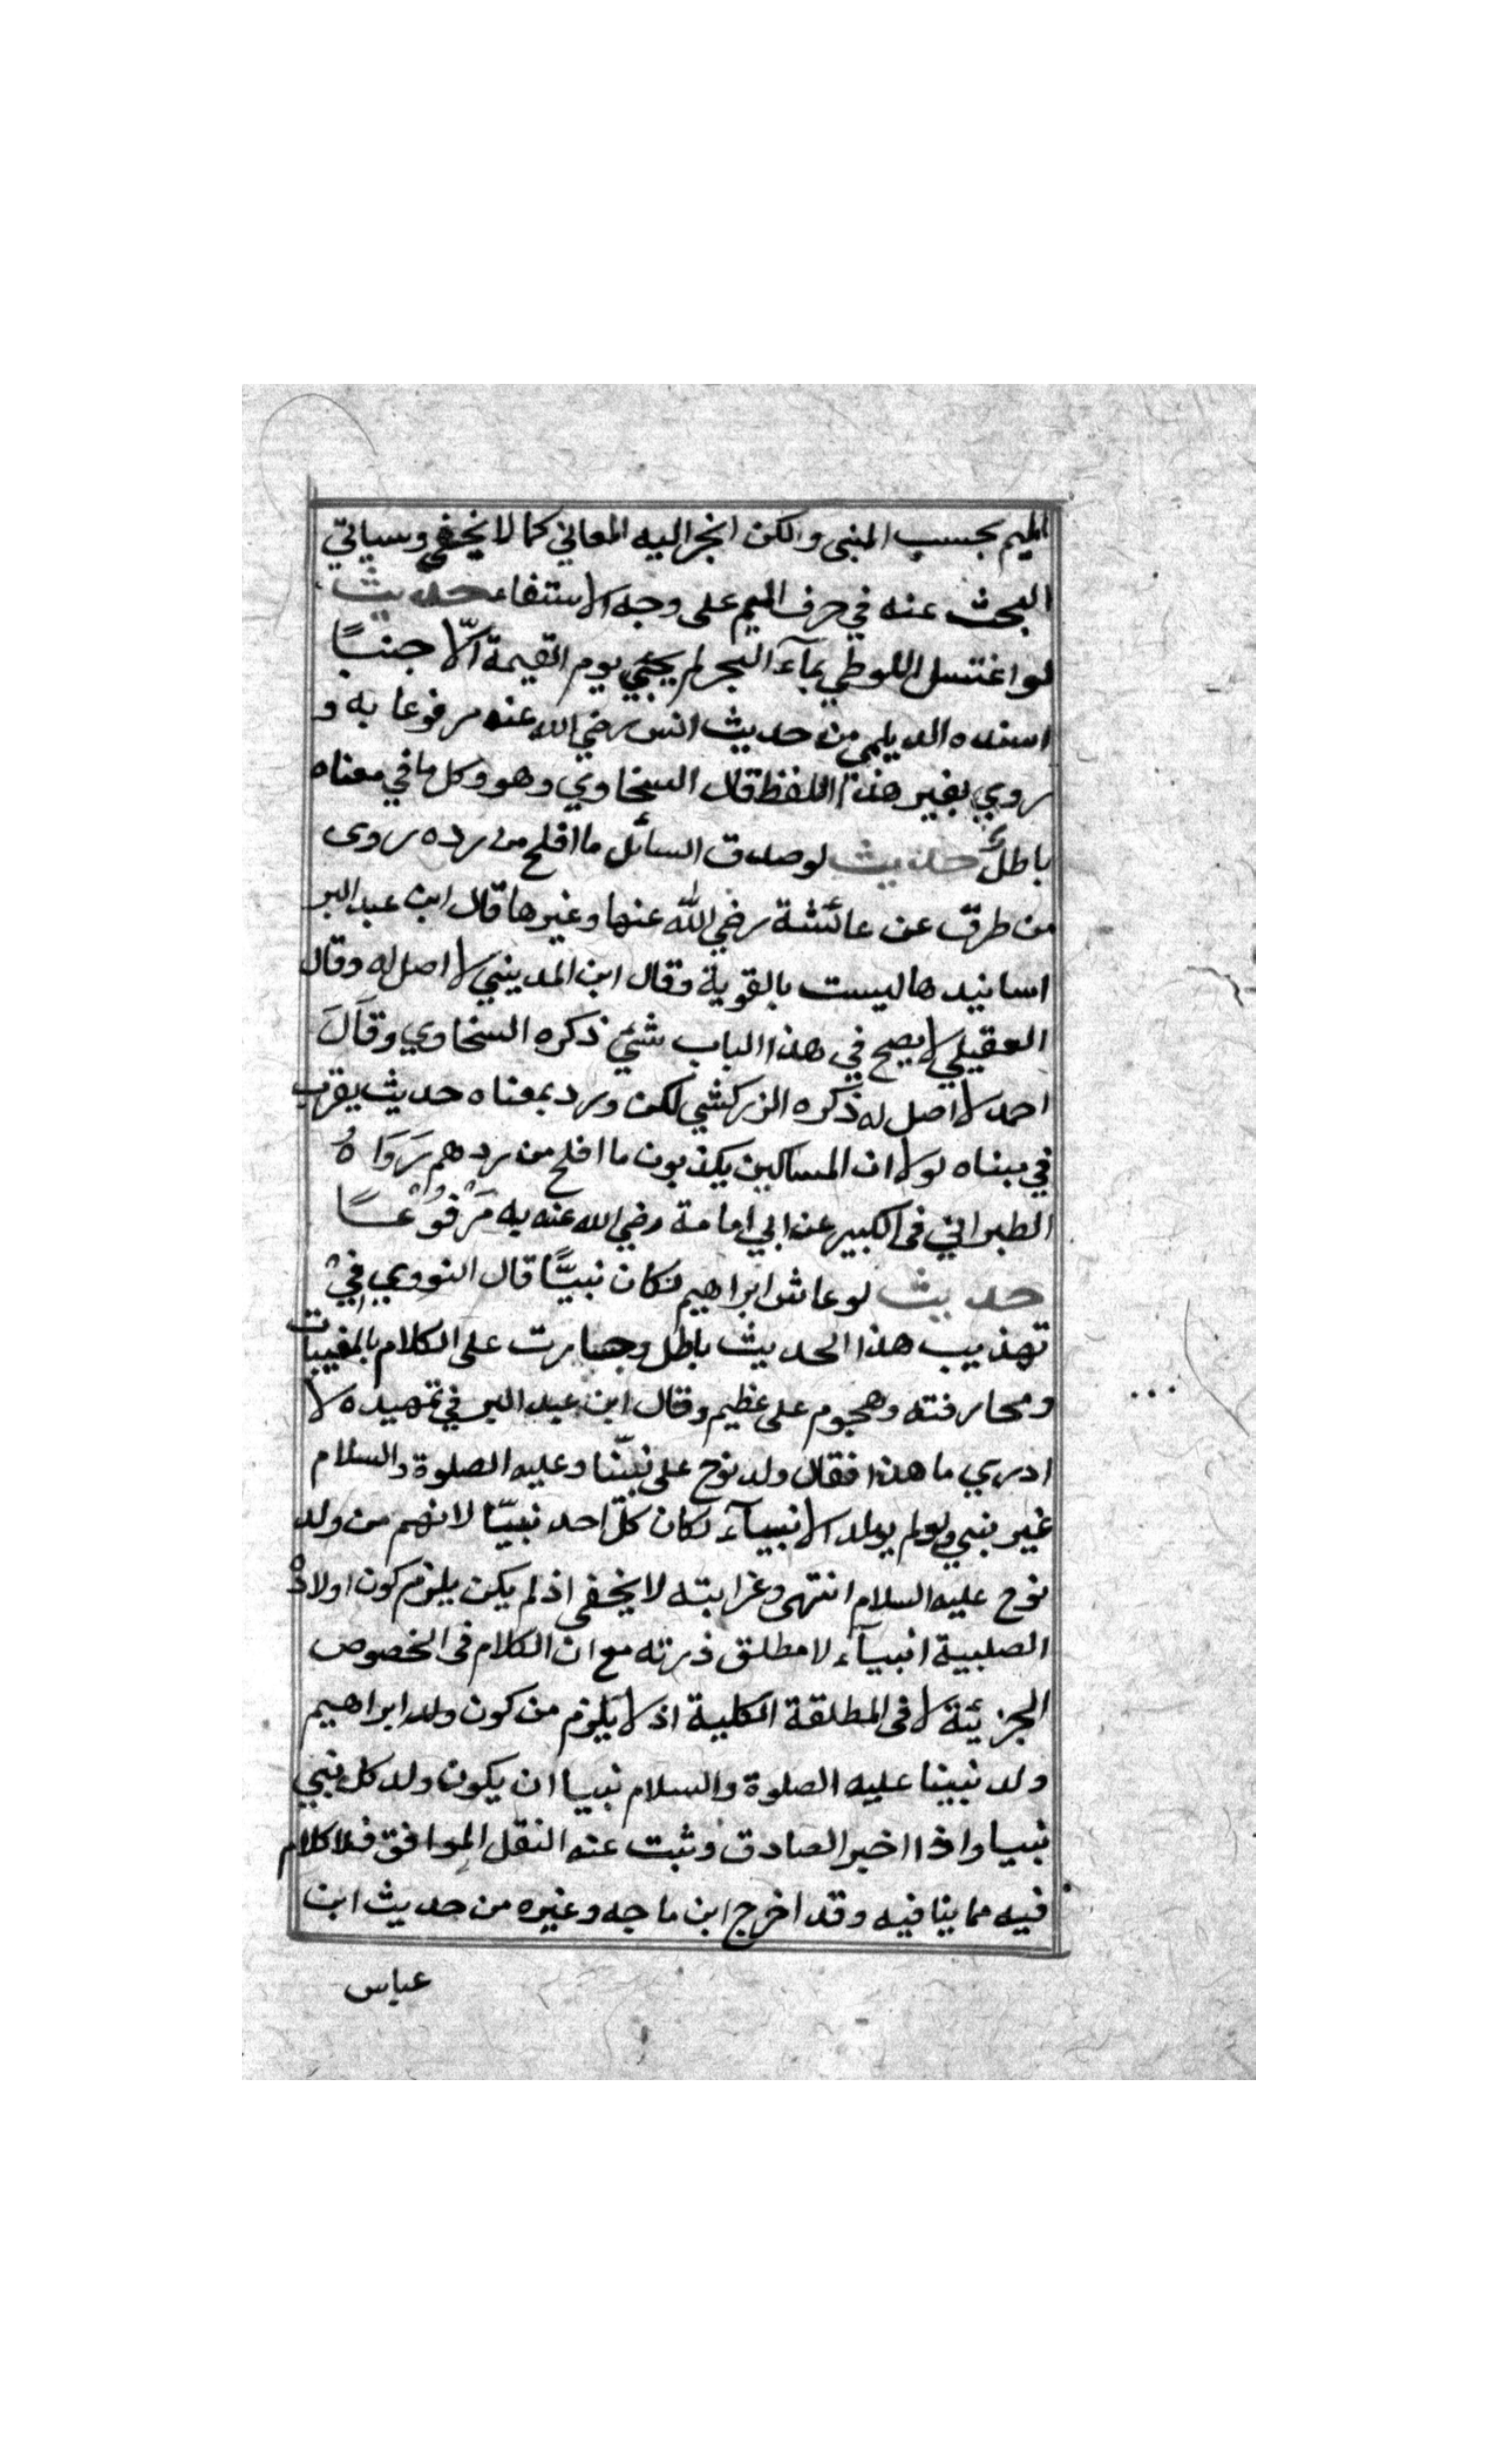 الميم بحسب المبنى ولكن انجر اليه المعاني كما لا يخفى وسياتي
البحث عنه في حرف الميم على وجه الاستنفاء حديث
لو اغتسل اللوطي بمآء البحر لم يجئ يوم القيمة الّا جنبًا
اسنده الديلمي من حديث انس رضي الله عنه مرفوعا به و
روي بغير هذا اللفظ قال السخاوي وهو وكل ما في معناه
باطل حديث لو صدق السائل ما افلح من رده روى
من طرق عن عائشة رضي الله عنها وغيرها قال ابن عبد البر
اسانيدها ليست بالقوية وقال ابن المديني لا اصل له وقال
العقيلي لا يصح في هذا الباب شئ ذكره السخاوي وقَالَ
احمد لا اصل له ذكره الزركشي لكن ورد بمعناه حديث يقرب
في مبناه لولا ان المساكين يكذبون ما افلح من ردهم رَوَاهُ
الطبراني فى الكبير عن ابي امامة رضي الله عنه به مَرْفُوْعًا
حديث لو عاش ابراهيم لكان نبيًّا قال النووي في
تهذيب هذا الحديث باطل وجسارت على الكلام بالمغيبات
ومجارفته وهجوم على عظيم وقال ابن عبد البر في تمهيده لا
ادري ما هذا فقال ولد نوح على نبيّنا وعليه الصلوة والسلام
غير نبي ولو لم يولد الا نبيآء لكان كلّ احد نبيّا لانهم من ولد
نوح عليه السلام انتهى وغرابته لا يخفى اذ لم يكن يلزم كون اولاده
الصلبية انبيآء لا مطلق ذرته مع ان الكلام فى الخصوص
الجزئية لا فى المطلقة الكلية اذ لا يلزم من كون ولد ابراهيم
ولد نبينا عليه الصلوة والسلام نبيا ان يكون ولد كل نبي
نبيا واذا اخبر الصادق وثبت عنه النقل الموافق فلا كلام
فيه مما ينافيه وقد اخرج ابن ماجه وغيره من حديث ابن
عباس